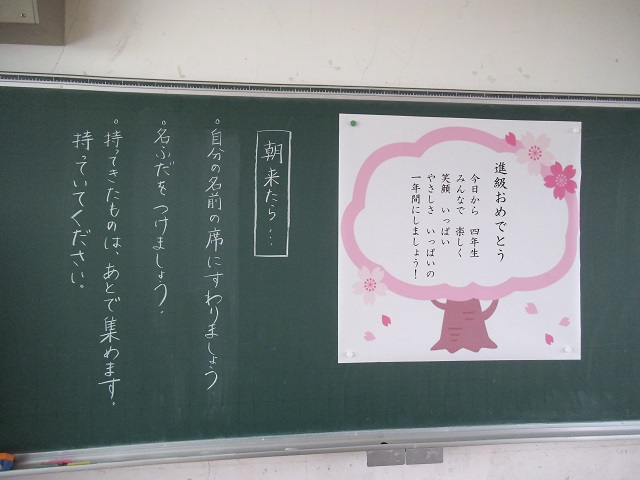 進級おめでとう
今日から　四年生
みんなで　楽しく
笑顔　いっぱい
やさしさ　いっぱいの
一年間にしましょう！
朝来たら…
・自分の名前の席にすわりましょう
・名ふだをつけましょう．
・持ってきたものは、あとで集めます．
持っていてください。